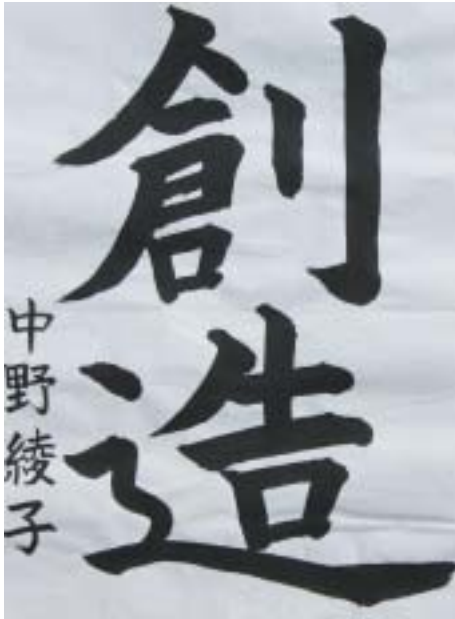 創造
中野綾子